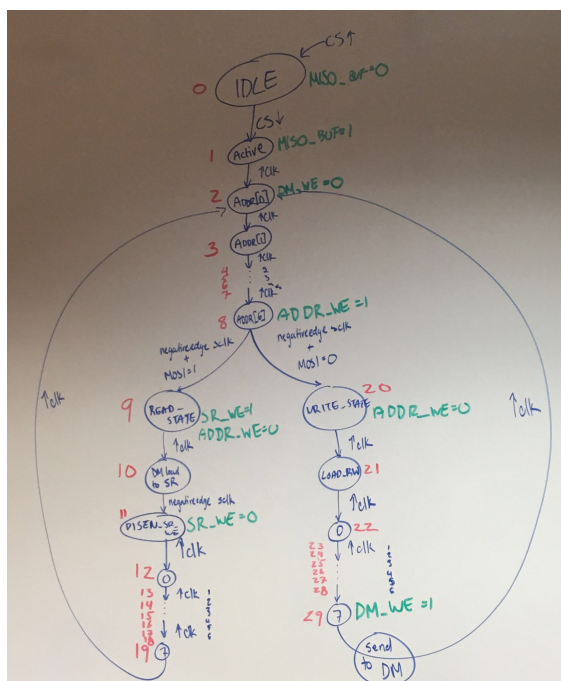 CS↑
0 IDLE MISO_BUF=0
CS↓
1 Active MISO_BUF=1
↑clk
2 ADDR[0] DM_WE=0
↑clk
3 ADDR[1]
↑clk
4 2
5 3
6
7 ↑clk
8 ADDR[6] ADDR_WE=1
negativeedge sclk
+
MOSI=1
negativeedge sclk
+
MOSI=0
↑clk
↑clk
9 READ_STATE SR_WE=1
ADDR_WE=0
↑clk
10 DM load to SR
negativeedge sclk
11 DISEN_SR_WE SR_WE=0
↑clk
12 0
13 ↑clk 1
14 2
15 3
16 4
17 5
18 ↑clk 6
19 7
20
WRITE_STATE ADDR_WE=0
↑clk
LOAD_RW 21
↑clk
0 22
23 ↑clk 1
24 2
25 3
26 4
27 5
28 6
29 7 DM_WE=1
send
to DM